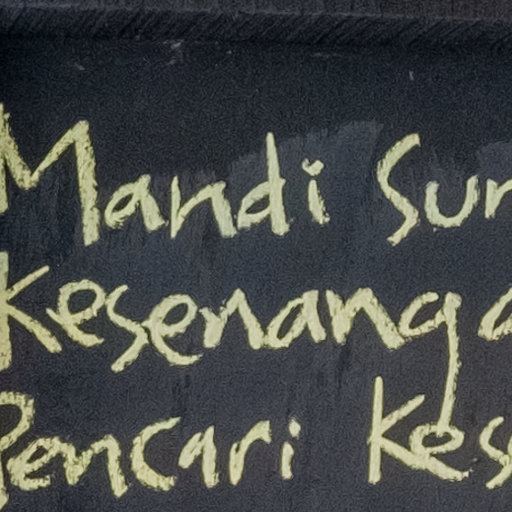 Mandi Sur
Kesenanga
Pencari Kes